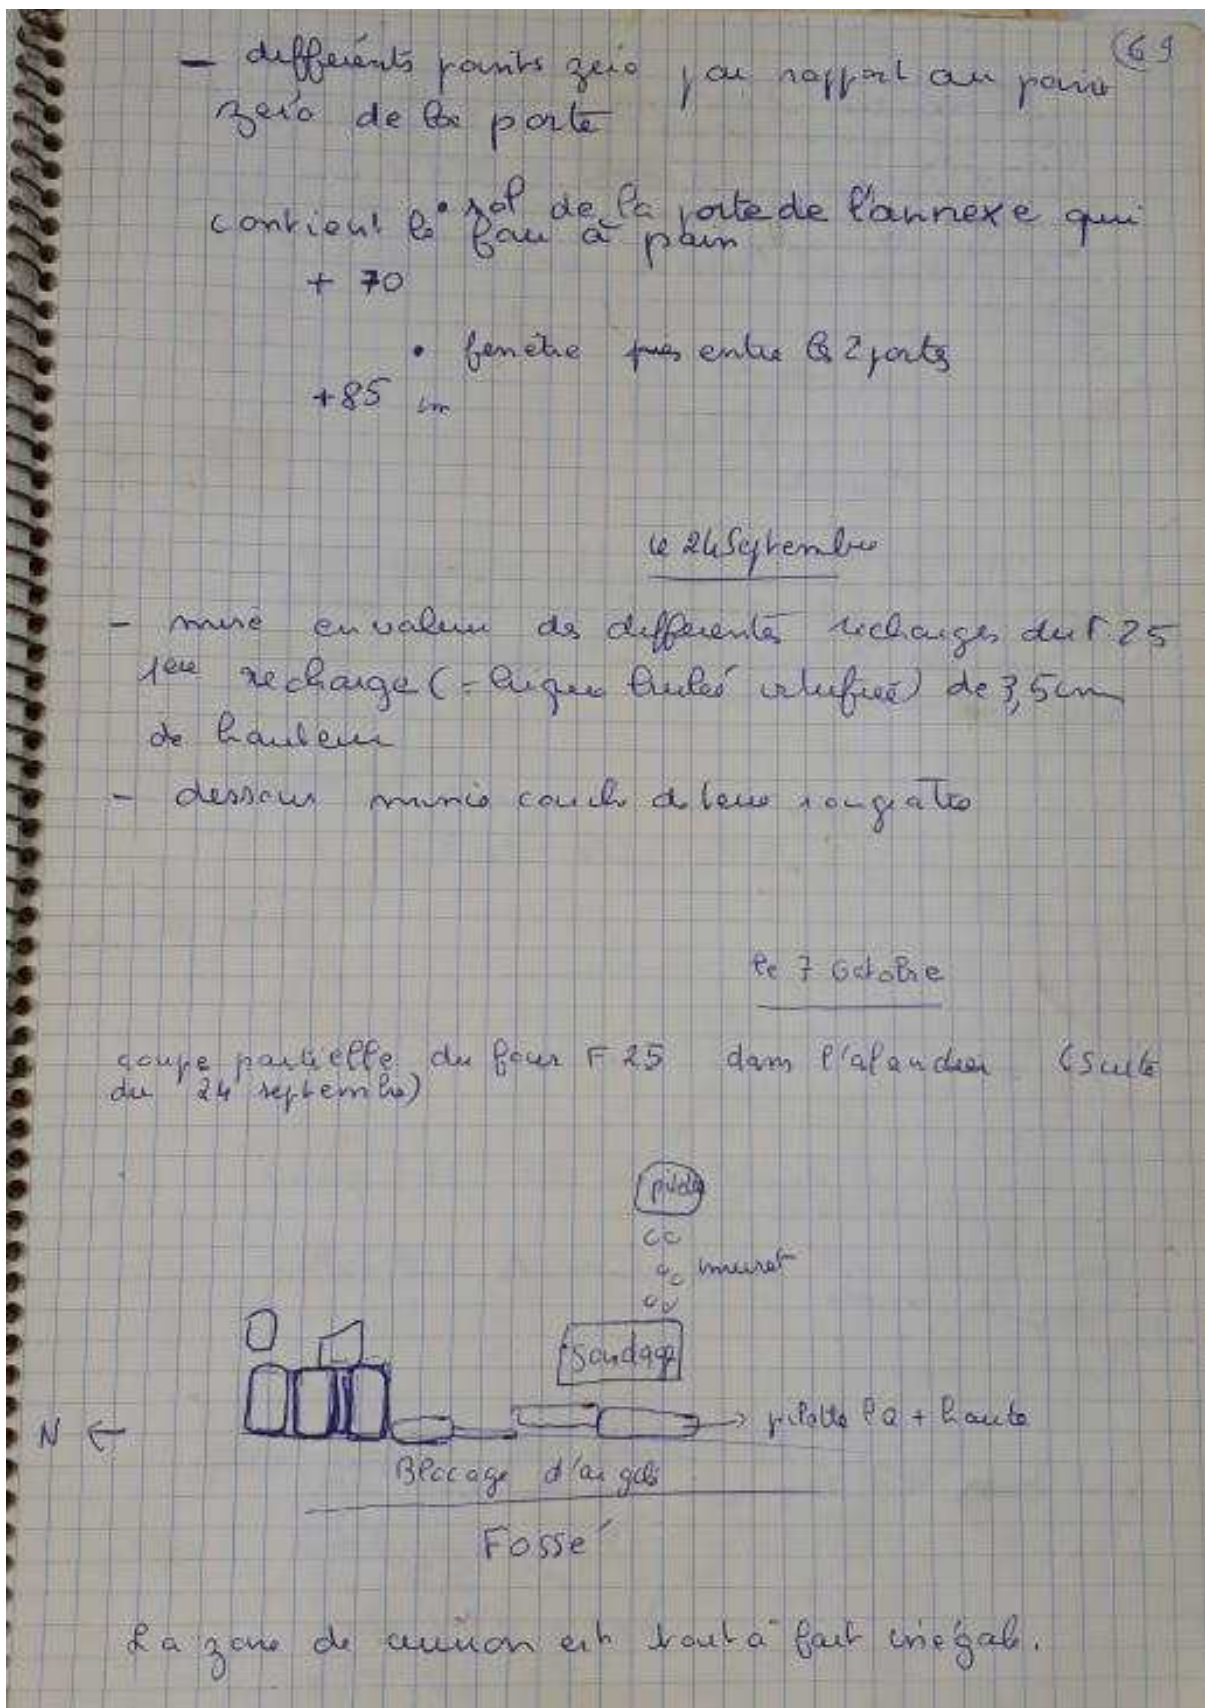 69
- différents points zéro par rapport au point
zéro de la porte
• sol de la porte de l'annexe qui
contient le four à pain
+ 70
• fenêtre entre les 2 portes
+85 cm
le 24 Septembre
- mise en valeur des différentes recharges du F 25
1ère recharge (= brulée vitrifiée) de 3,5cm
de hauteur
- dessous mince couche de terre rougeatre
le 7 Octobre
coupe partielle du four F 25 dans l'alandier (Suite
du 24 septembre)
pilette
muret
Sondage
N ←
→ pilette la + haute
Blocage d'argile
Fossé
La zone de cuisson est tout à fait inégale.